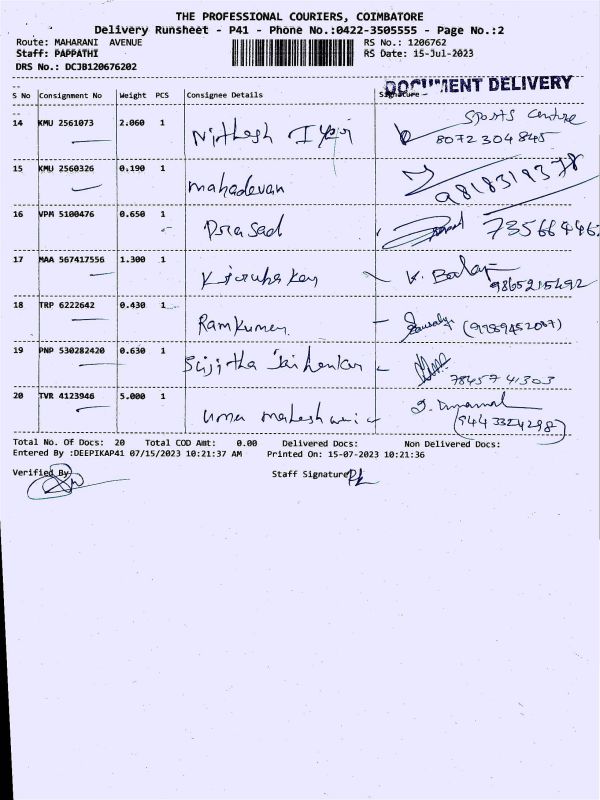 THE PROFESSIONAL COURIERS, COIMBATORE
Delivery Runsheet - P41 - Phone No.:0422-3505555 - Page No.:2
Route: MAHARANI AVENUE
RS No.: 1206762
Staff: PAPPATHI
RS Date: 15-Jul-2023
DRS No.: DCJB120676202
DOCUMENT DELIVERY
S No Consignment No Weight PCS Consignee Details Signature
14 KMU 2561073 2.060 1 Nithesh Sports Centre
8072304845
15 KMU 2560326 0.190 1 mahadevan 9818319378
16 VPM 5100476 0.650 1 Prasad 73566446
17 MAA 567417556 1.300 1 K. Balaji
9865215492
18 TRP 6222642 0.430 1 Ramkumar
19 PNP 530282420 0.630 1 Srijitha
7845741303
20 TVR 4123946 5.000 1 uma maheshwari
9443324298
Total No. Of Docs: 20 Total COD Amt: 0.00 Delivered Docs: Non Delivered Docs:
Entered By :DEEPIKAP41 07/15/2023 10:21:37 AM Printed On: 15-07-2023 10:21:36
Verified By
Staff Signature